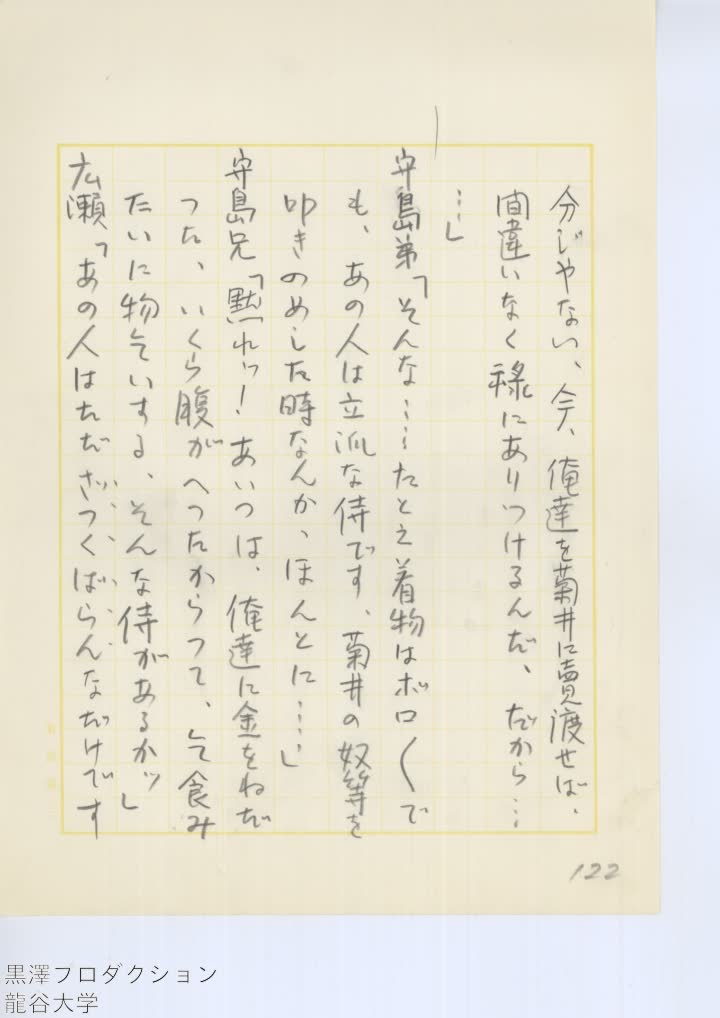 分じやない、今、俺達を菊井に賣渡せば、
間違いなく禄にありつけるんだ、だから…
…」
守島弟「そんな……たとえ着物はボロ〱で
も、あの人は立派な侍です、菊井の奴等を
叩きのめした時なんか、ほんとに……」
守島兄「黙れッ！あいつは、俺達に金をねだ
つた、いくら腹がへつたからつて、乞食み
たいに物乞いする、そんな侍があるかッ」
広瀬「あの人はただざつくばらんなだけです
122
黒澤プロダクション
龍谷大学